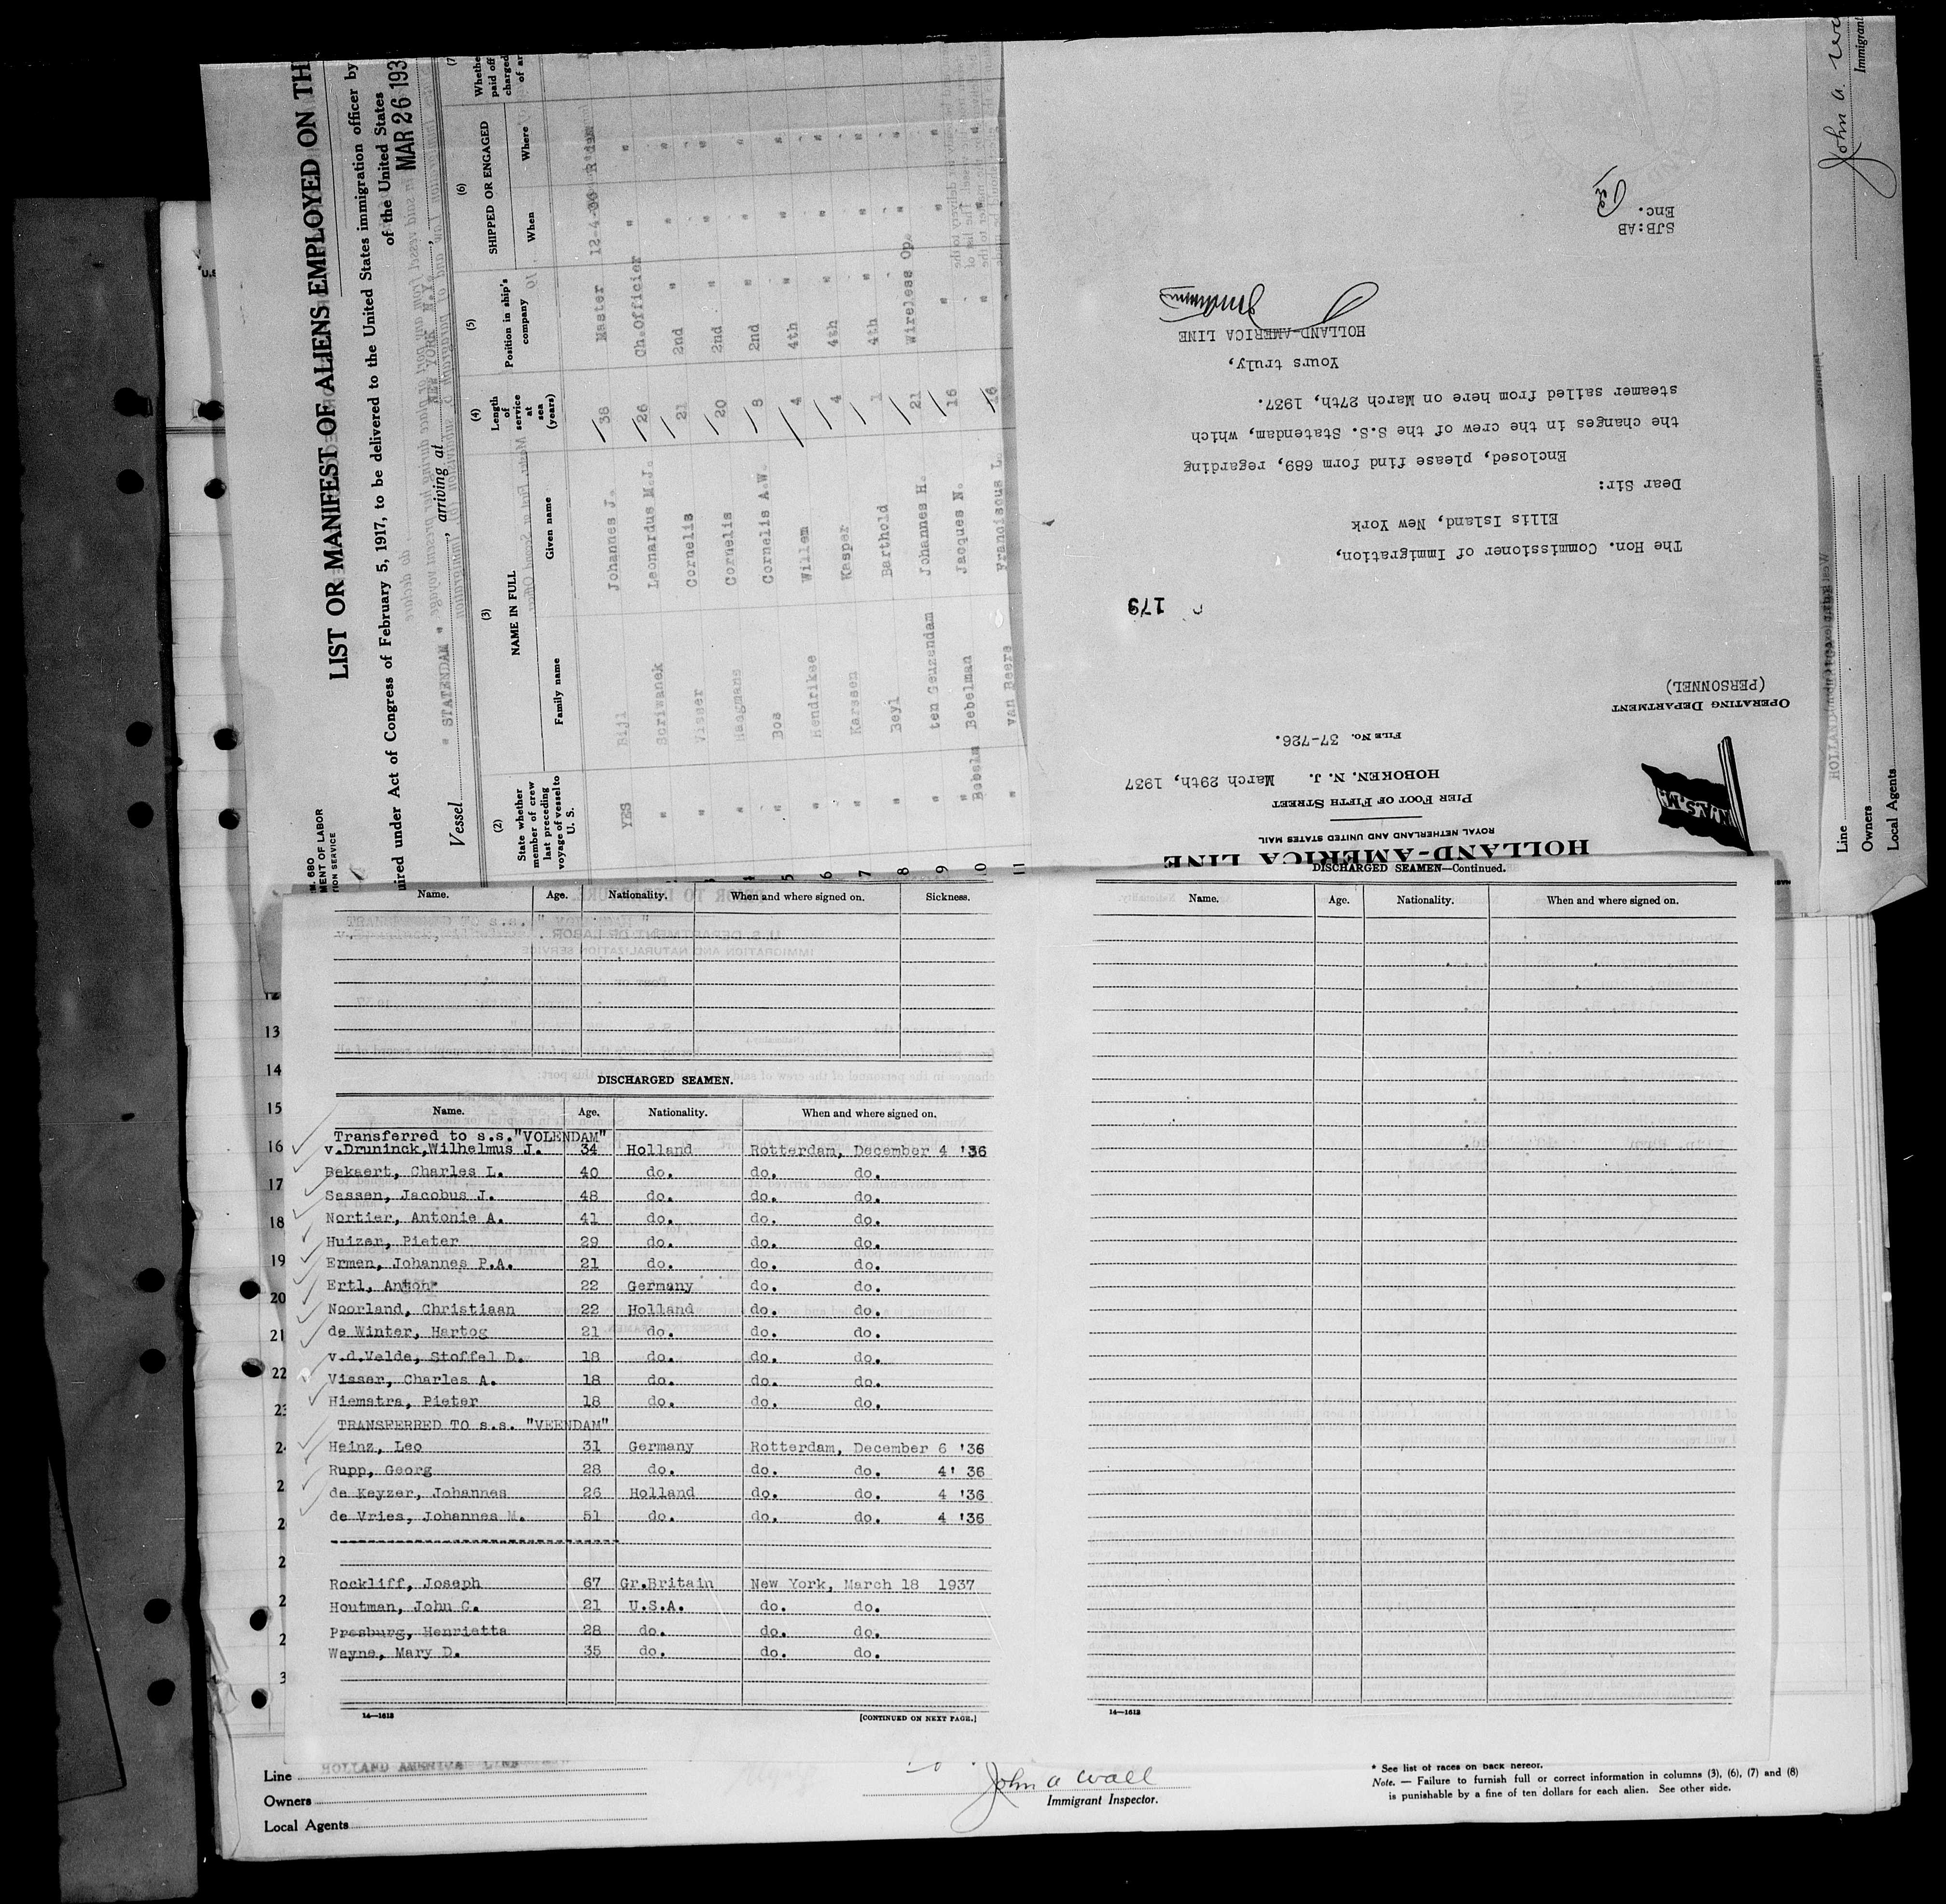 LIST OR MANIFEST OF ALIENS EMPLOYED ON TH
uired under Act of Congress of February 5, 1917, to be delivered to the United States immigration officer by
of the United States
MAR 26 193
Vessel " STATENDAM " , arriving at
680
MENT OF LABOR
TION SERVICE
(2) (3) (4) (5) (6) (7)
State whether member of crew last preceding voyage of vessel to U. S.
NAME IN FULL
Family name Given name
Length of service at sea (years)
Position in ship's company
SHIPPED OR ENGAGED
When Where
YES Bijl Johannes J. 38 Master 12-4-36 R'dam
" Scriwanek Leonardus M.J. 26 Ch.Officier " "
" Visser Cornelis 21 2nd " " "
" Haagmans Cornelis 20 2nd " " "
" Bos Cornelis A.W. 8 2nd " " "
5 " Hendrikse Willem 4 4th " " "
6 " Karssen Kasper 4 4th " " "
7 " Beyl Barthold 1 4th " " "
8 " ten Geuzendam Johannes H. 21 Wireless Op. " "
9 " Bebelman Jacques N. 16 " " "
10 " van Beers Franciscus L. 16 " " "
11
HOLLAND-AMERICA LINE
ROYAL NETHERLAND AND UNITED STATES MAIL
PIER FOOT OF FIFTH STREET
HOBOKEN, N. J. March 29th, 1937
FILE NO. 37-726.
N.A.S.M.
OPERATING DEPARTMENT
(PERSONNEL)
179
The Hon. Commissioner of Immigration,
Ellis Island, New York
Dear Sir:
Enclosed, please find form 689, regarding
the changes in the crew of the S.S. Statendam, which
steamer sailed from here on March 27th, 1937.
Yours truly,
HOLLAND-AMERICA LINE
SJB:AB
Enc.
John a.
Immigrant
Line
Owners
Local Agents
Name. Age. Nationality. When and where signed on. Sickness.
DISCHARGED SEAMEN.
Name. Age. Nationality. When and where signed on.
Transferred to s.s."VOLENDAM"
v.Druninck,Wilhelmus J. 34 Holland Rotterdam, December 4 '36
Bekaert, Charles L. 40 do. do. do.
Sassen, Jacobus J. 48 do. do. do.
Nortier, Antonie A. 41 do. do. do.
Huizer, Pieter 29 do. do. do.
Ermen, Johannes P.A. 21 do. do. do.
Ertl, Anton 22 Germany do. do.
Noorland, Christiaan 22 Holland do. do.
de Winter, Hartog 21 do. do. do.
v.d.Velde, Stoffel D. 18 do. do. do.
Visser, Charles A. 18 do. do. do.
Hiemstra, Pieter 18 do. do. do.
TRANSFERRED TO s.s. "VEENDAM"
Heinz, Leo 31 Germany Rotterdam, December 6 '36
Rupp, Georg 28 do. do. do. 4' 36
de Keyzer, Johannes 26 Holland do. do. 4 '36
de Vries, Johannes M. 51 do. do. do. 4 '36
Rockliff, Joseph 67 Gr.Britain New York, March 18 1937
Houtman, John C. 21 U.S.A. do. do.
Presburg, Henrietta 28 do. do. do.
Wayne, Mary D. 35 do. do. do.
14—1618 [CONTINUED ON NEXT PAGE.]
DISCHARGED SEAMEN—Continued.
Name. Age. Nationality. When and where signed on.
14—1618
13
14
15
16
17
18
19
20
21
22
Line HOLLAND AMERICA LINE
Owners
Local Agents
John a wall
Immigrant Inspector.
* See list of races on back hereof.
Note. — Failure to furnish full or correct information in columns (3), (6), (7) and (8)
is punishable by a fine of ten dollars for each alien. See other side.